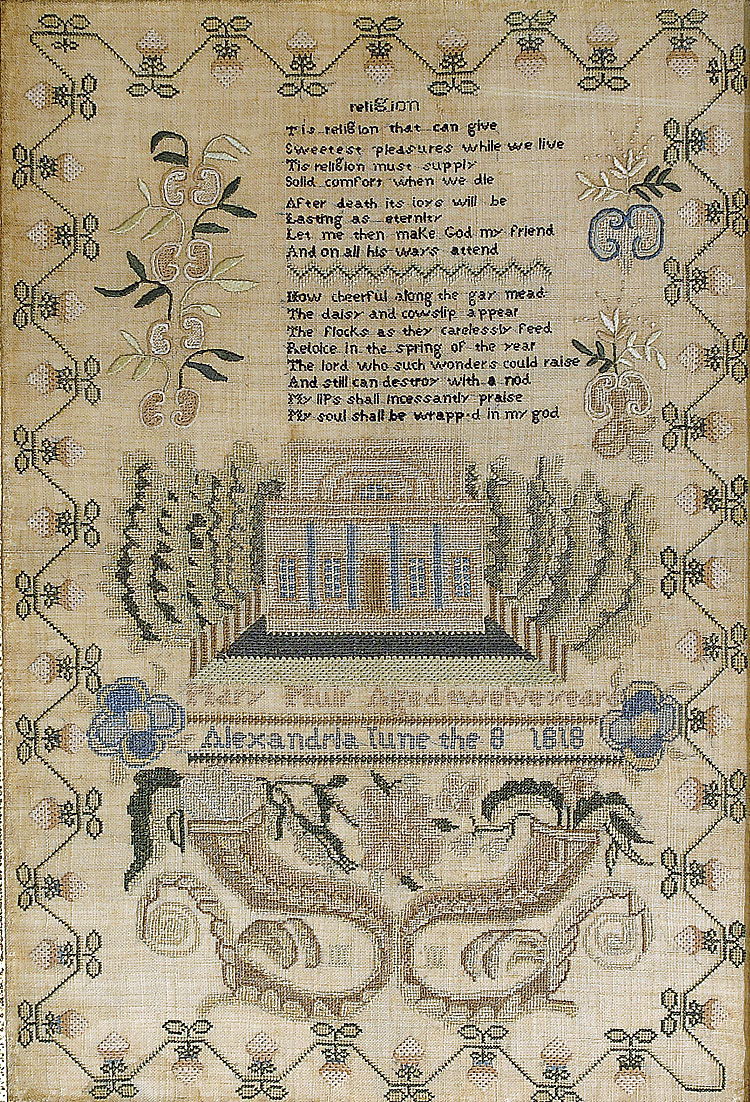 religion
Tis religion that can give
Sweetest pleasures while we live
Tis religion must supply
Solid comfort when we die
After death its ioys will be
Lasting as eternity
Let me then make God my friend
And on all his ways attend
How cheerful along the gay mead
The daisy and cowslip appear
The flocks as they carelessly feed
Rejoice in the spring of the year
The lord who such wonders could raise
And still can destroy with a nod
My lips shall incessantly praise
My soul shall be wrapp.d in my god
Mary Muir Aged twelve years
Alexandria Iune the 8 1818